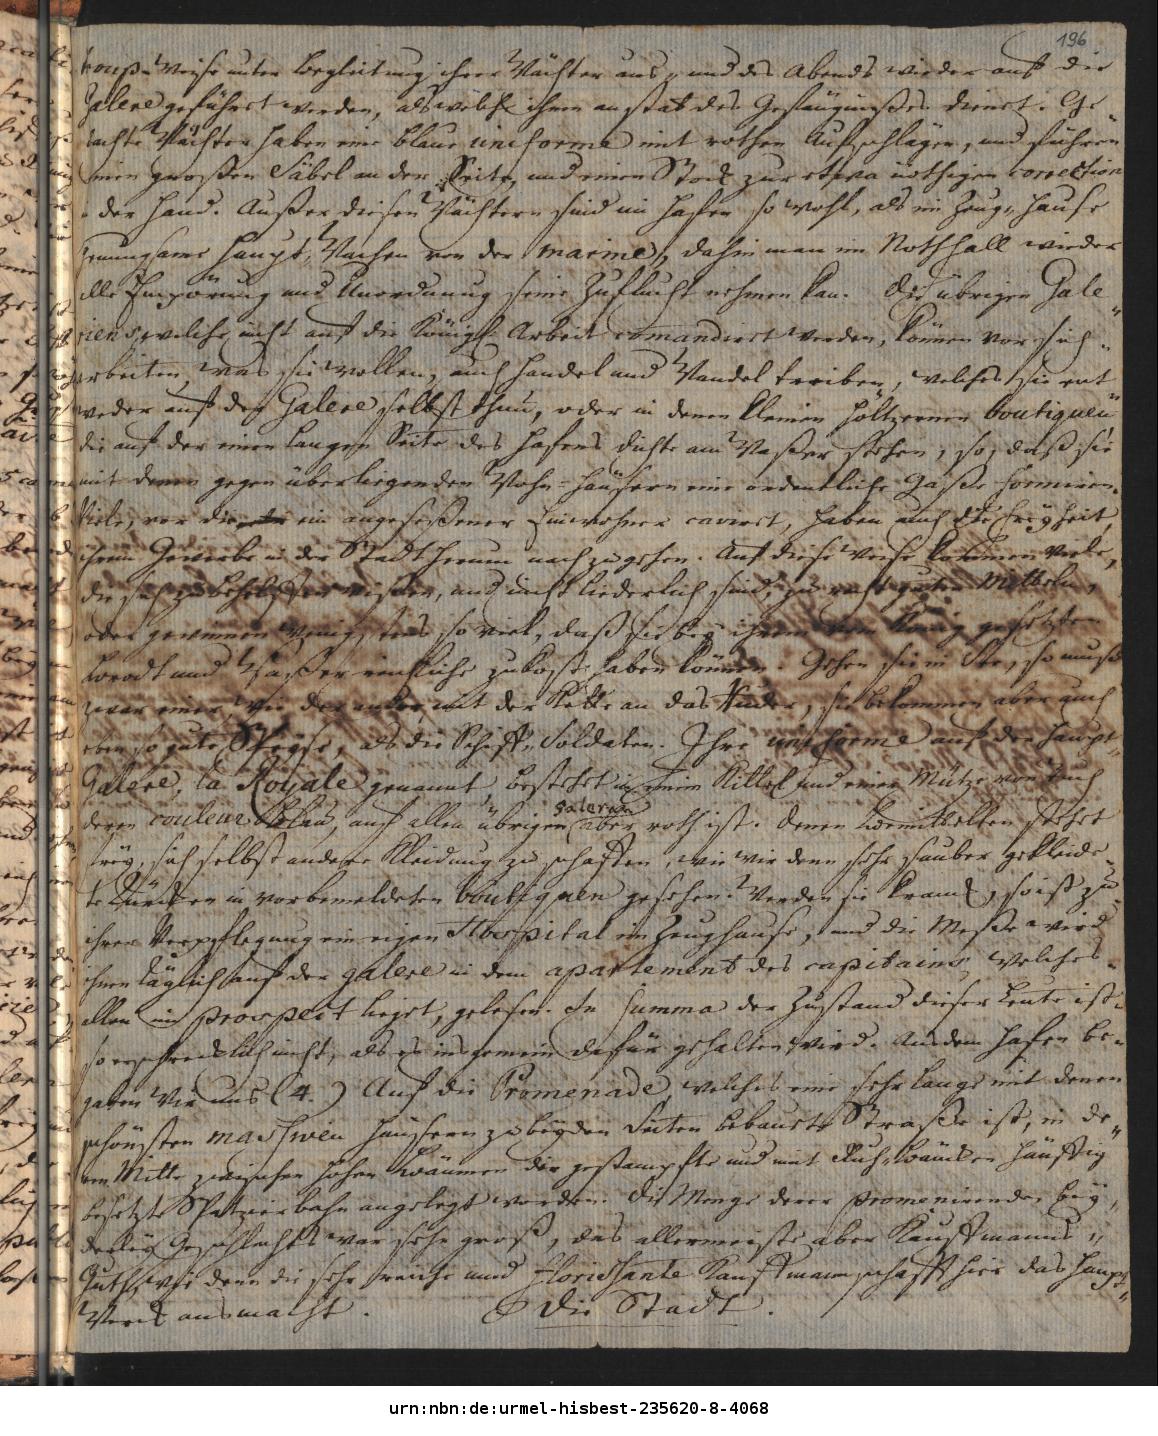 196
troup-Weise unter Begleitung ihrer Wächter aus, und des Abends wieder auf die
Galere geführet werden, als welche ihnen anstat des Gefängnißes dienet. Ge-
dachte Wächter haben eine blaue uniforme mit rothen Aufschlägen, und führen
einen großen Säbel an der Seite, und einen Stock zur etwa nöthigen correction
in der Hand. Außer diesen Wächtern sind im Hafen so wohl, als im Zeug-Hause
genungsame Haupt-Wachen von der marine, dahin man im Nothfall wieder
alle Empörung und Unordnung seine Zuflucht nehmen kan. Die übrigen Gale-
riens, welche nicht auf die Königl. Arbeit comandiret werden, können vor sich
arbeiten, was sie wollen, auch Handel und Wandel treiben, welches sie ent-
weder auf der Galere selbst thun, oder in denen kleinen höltzernen boutiquen
die auf der einen langen Seite des Hafens dichte am Waßer stehen, so, daß sie
mit denen gegen über liegenden Wohn-Häusern eine ordentliche Gaße formiren.
Viele, vor die ein angeseßener Einwohner caviret, haben auch die Freyheit,
ihrem Gewerbe in der Stadt herum nachzugehen. Auf diese Weise kommen viele,
die sich zu behelfen wißen, und nicht liederlich sind, zu recht guten Mitteln,
oder gewinnen wenigstens so viel, daß sie bey ihrem vom König gesetzten
Brodt und Waßer reichliche Zukost haben können. Gehen sie in See, so muß
zwar einer, wie der andre, mit der Kette an das Ruder, sie bekommen aber auch
eben so gute Speise, als die Schiff-Soldaten. Ihre uniforme auf der Haupt-
Galere, la Royale genannt, bestehet in einem Kittel und einer Mütze von Tuch
deren couleur blau, auf allen übrigen Galeren aber roth ist. Denen bemittelten stehet
frey, sich selbst andere Kleidung zu schaffen, wie wir denn sehr sauber gekleide-
te Türcken in vorbemeldeten boutiquen gesehen. Werden sie kranck, so ist zu
ihrer Verpflegung ein eigen Hospital im Zeughause, und die Meße wird
ihnen täglich auf der galere in dem apartement des capitains, welches
allen im prospect lieget, gelesen. In summa der Zustand dieser Leute ist
so erschrecklich nicht, als es insgemein dafür gehalten wird. Aus dem Hafen be-
gaben wir uns (4.) Auf die Promenade, welches eine sehr lange mit denen
schönsten massiven Häusern zu beyden Seiten bebaute Straße ist, in de-
ren Mitte zwischen hohen Bäumen die gestampfte und mit Ruh-Bäncken häuffig
besetzte Spatzierbahn angelegt worden. Die Menge derer promenirenden bey-
derley Geschlechts war sehr groß, das allermeiste aber Kauffmanns-
Guth, wie denn die sehr reiche und florissante Kauffmannschafft hier das Haupt-
Werck ausmacht. Die Stadt.
urn:nbn:de:urmel-hisbest-235620-8-4068